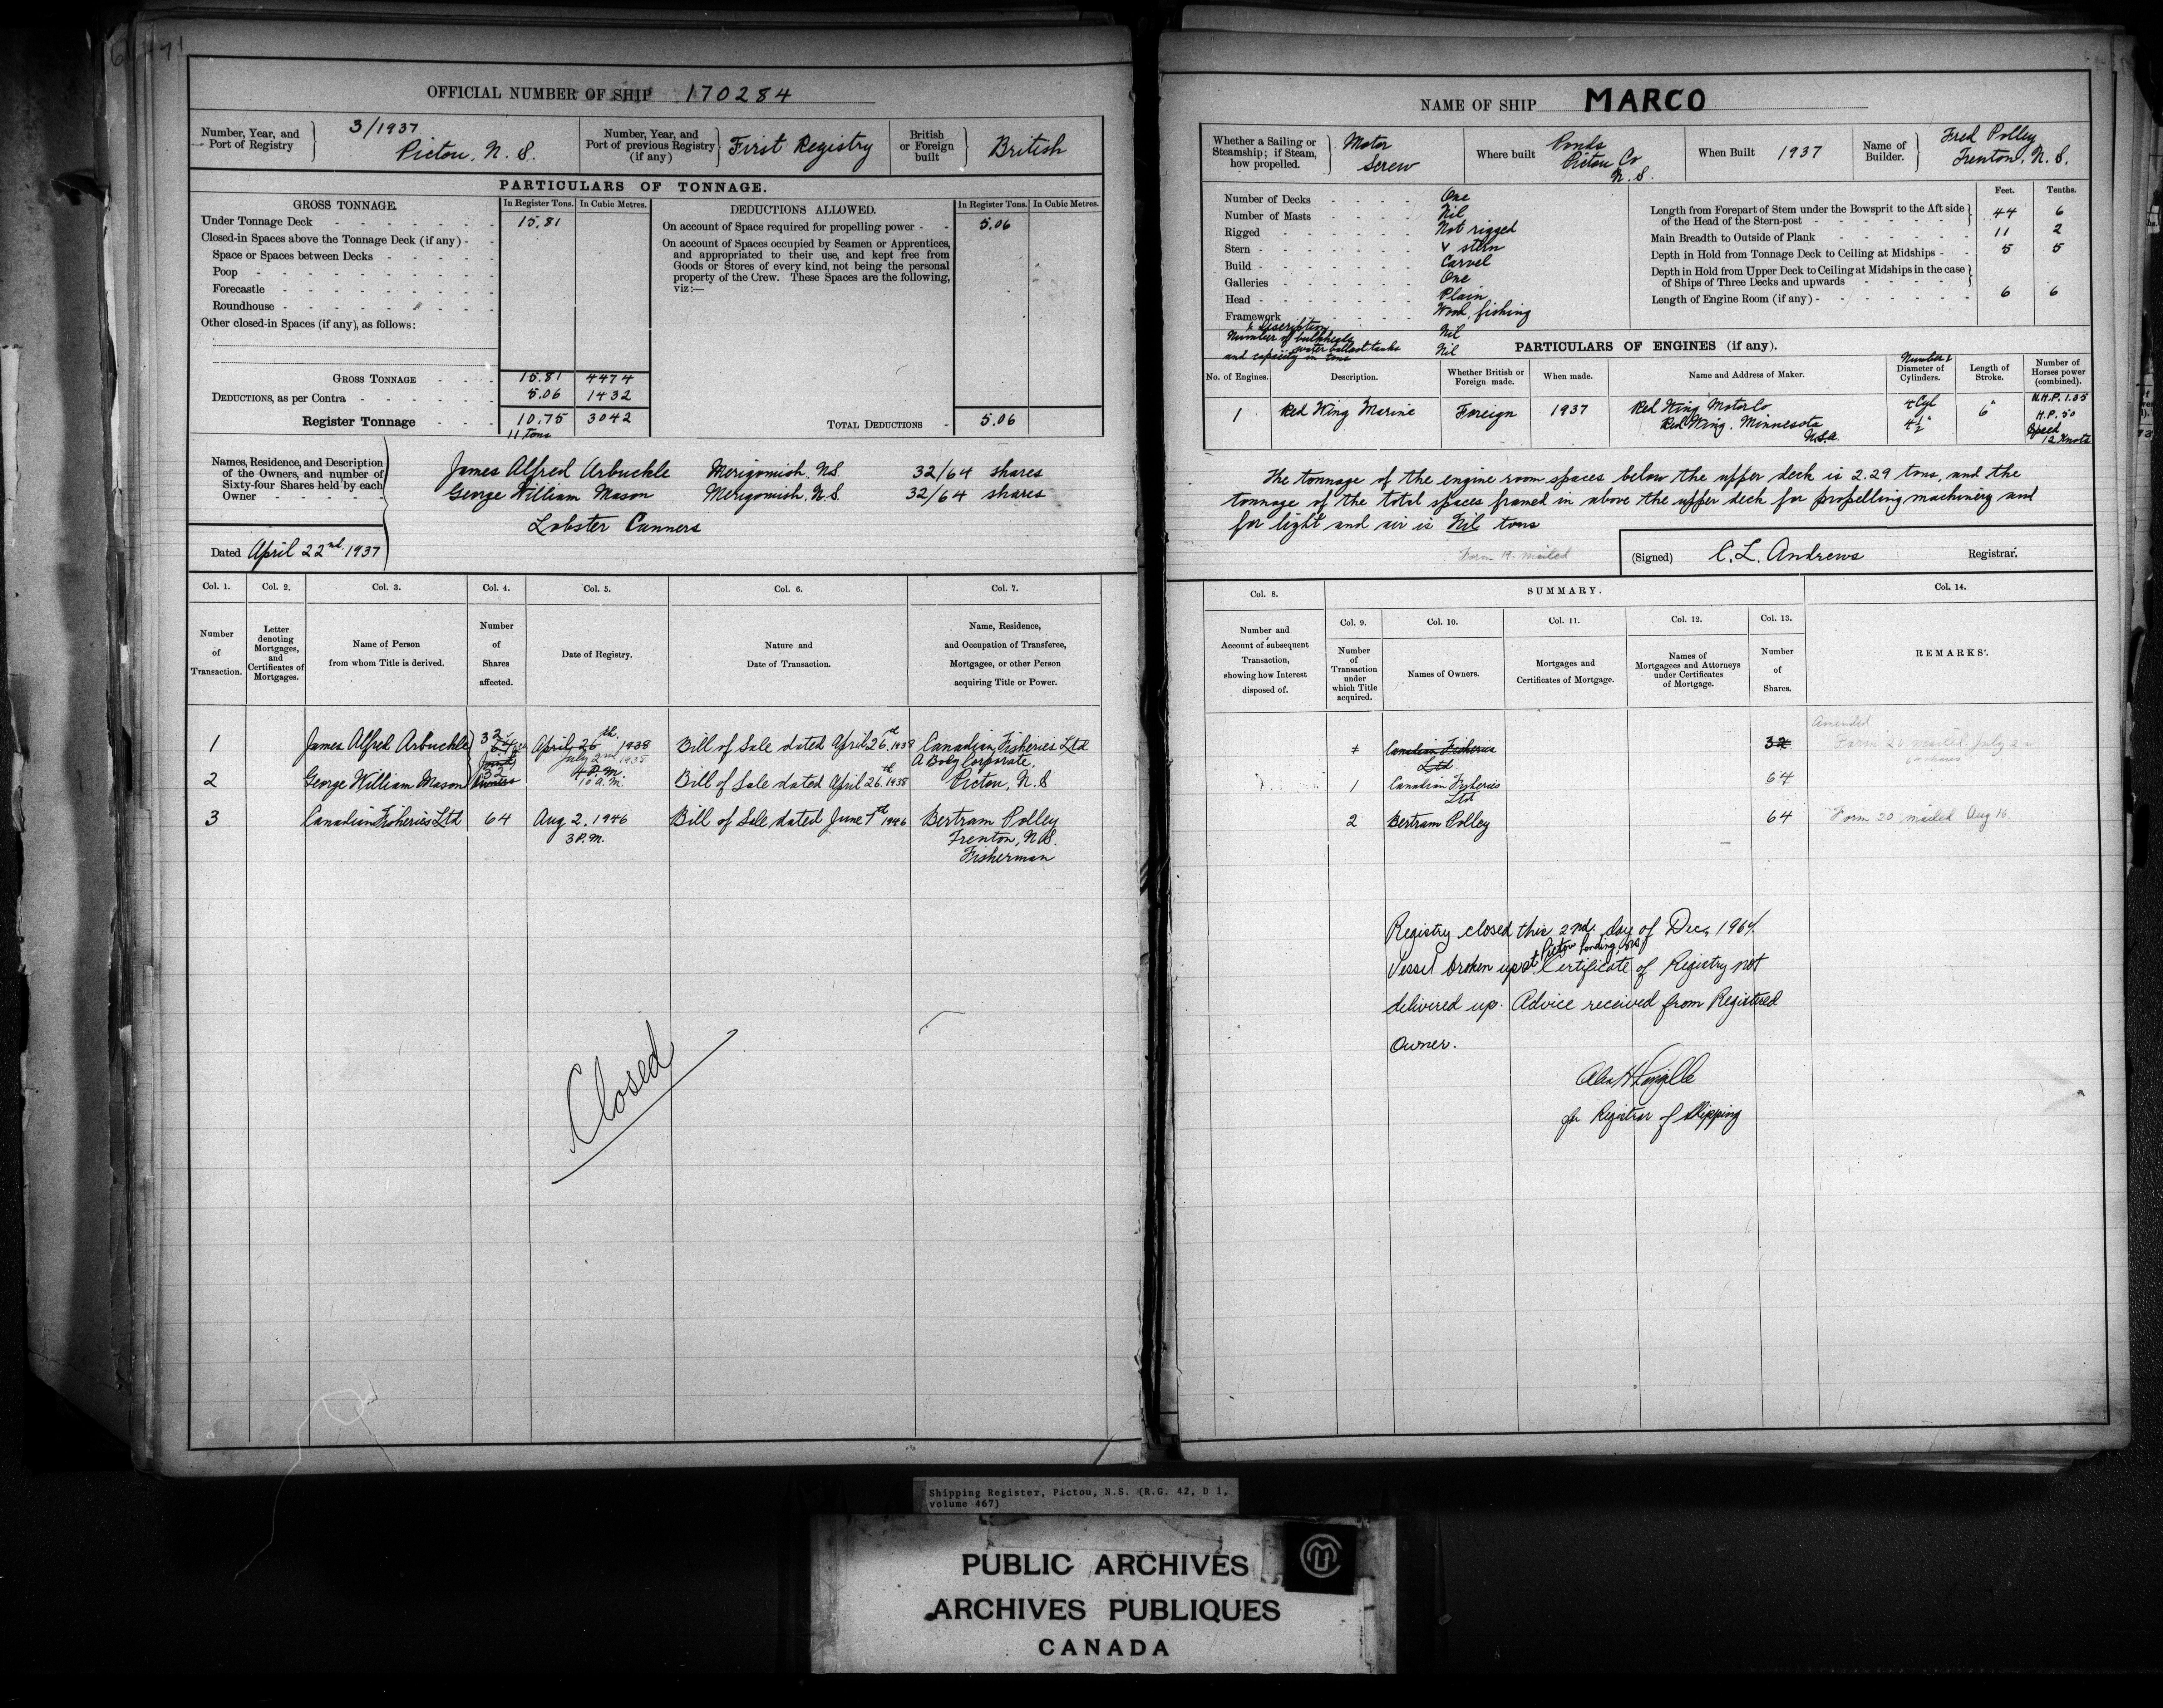 OFFICIAL NUMBER OF SHIP 170284
Number, Year, and Port of Registry
3/1937
Pictou, N. S.
Number, Year, and Port of previous Registry (if any)
First Registry
British or Foreign built
British
PARTICULARS OF TONNAGE.
GROSS TONNAGE.
In Register Tons. In Cubic Metres.
Under Tonnage Deck 15.81
Closed-in Spaces above the Tonnage Deck (if any)
Space or Spaces between Decks
Poop
Forecastle
Roundhouse
Other closed-in Spaces (if any), as follows:
GROSS TONNAGE 15.81 4474
DEDUCTIONS, as per Contra 5.06 1432
Register Tonnage 10.75 3042
11 tons
DEDUCTIONS ALLOWED.
In Register Tons. In Cubic Metres.
On account of Space required for propelling power 5.06
On account of Spaces occupied by Seamen or Apprentices,
and appropriated to their use, and kept free from
Goods or Stores of every kind, not being the personal
property of the Crew. These Spaces are the following,
viz:—
TOTAL DEDUCTIONS 5.06
Names, Residence, and Description
of the Owners, and number of
Sixty-four Shares held by each
Owner
James Alfred Arbuckle Merigomish. N.S 32/64 shares
George William Mason Merigomish, N.S 32/64 shares
Lobster Canners
Dated April 22nd 1937
Col. 1. Col. 2. Col. 3. Col. 4. Col. 5. Col. 6. Col. 7.
Number of Transaction.
Letter denoting Mortgages, and Certificates of Mortgages.
Name of Person from whom Title is derived.
Number of Shares affected.
Date of Registry.
Nature and Date of Transaction.
Name, Residence, and Occupation of Transferee, Mortgagee, or other Person acquiring Title or Power.
1 James Alfred Arbuckle 32 64 April 26th 1938 Bill of Sale dated April 26th 1938 Canadian Fisheries Ltd
July 2nd 1938 A Body Corporate,
4 P.M.
2 George William Mason 32 10 a.m. Bill of Sale dated April 26th 1938 Pictou, N.S
3 Canadian Fisheries Ltd 64 Aug 2, 1946 Bill of Sale, dated June 7th 1946 Bertram Polley
3 P.M. Trenton, N.S.
Fisherman
Closed
NAME OF SHIP MARCO
Whether a Sailing or Steamship; if Steam, how propelled.
Motor
Screw
Where built
Ponds
Pictou Co
N.S.
When Built 1937
Name of Builder.
Fred Polley
Trenton, N.S.
Number of Decks One
Number of Masts Nil
Rigged Not rigged
Stern V stern
Build Carvel
Galleries One
Head Plain
Framework Wood, fishing
& description
Number of bulkheads Nil
water ballast tanks
and capacity in tons Nil
Feet. Tenths.
Length from Forepart of Stem under the Bowsprit to the Aft side
of the Head of the Stern-post 44 6
Main Breadth to Outside of Plank 11 2
Depth in Hold from Tonnage Deck to Ceiling at Midships 5 5
Depth in Hold from Upper Deck to Ceiling at Midships in the case
of Ships of Three Decks and upwards
Length of Engine Room (if any) 6 6
PARTICULARS OF ENGINES (if any).
No. of Engines.
Description.
Whether British or Foreign made.
When made.
Name and Address of Maker.
Number & Diameter of Cylinders.
Length of Stroke.
Number of Horses power (combined).
1 Red Wing Marine Foreign 1937 Red Wing Motor Co 4 Cyl 6" N.H.P. 1.35
Red Wing. Minnesota 4½" H.P. 50
U.S.A. Speed
12 Knots
The tonnage of the engine room spaces below the upper deck is 2.29 tons, and the
tonnage of the total spaces framed in above the upper deck for propelling machinery and
for light and air is Nil tons
Form 19. mailed
(Signed) C. L. Andrews Registrar.
Col. 8.
SUMMARY.
Col. 14.
Col. 9. Col. 10. Col. 11. Col. 12. Col. 13.
Number and Account of subsequent Transaction, showing how Interest disposed of.
Number of Transaction under which Title acquired.
Names of Owners.
Mortgages and Certificates of Mortgage.
Names of Mortgagees and Attorneys under Certificates of Mortgage.
Number of Shares.
REMARKS.
Amended
1 Canadian Fisheries Ltd 32 Form 20 mailed July 2
64 shares
1 Canadian Fisheries Ltd 64
2 Bertram Polley 64 Form 20 mailed Aug 16.
Registry closed this 2nd. day of Dec, 1964.
Vessel broken up at Pictou Landing, NS Certificate of Registry not
delivered up. Advice received from Registered
Owner.
for Registrar of Shipping
Shipping Register, Pictou, N.S. (R.G. 42, D 1,
volume 467)
PUBLIC ARCHIVES
ARCHIVES PUBLIQUES
CANADA